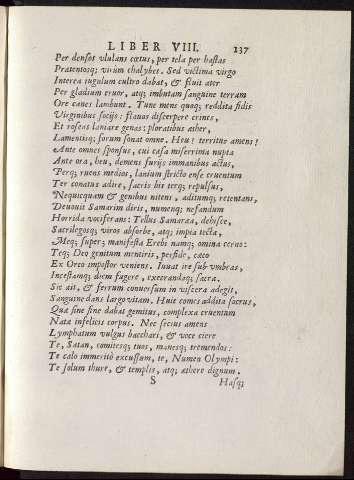 LIBER VIII. 237
Per densos vlulans cœtus, per tela per hastas
Prætentosq; virûm chalybes. Sed victima virgo
Interea iugulum cultro dabat, & fluit ater
Per gladium cruor, atq; imbutam sanguine terram
Ore canes lambunt. Tunc mens quoq; reddita fidis
Virginibus socijs: flauos discerpere crines,
Et roseas laniare genas: ploratibus æther,
Lamentisq; forum sonat omne. Heu? territus amens?
Ante omnes sponsus, cui casa miserrima nupta
Ante ora, heu, demens furijs immanibus actus,
Perq; ruens medios, lanium stricto ense cruentum
Ter conatus adire, sacris bis terq; repulsus,
Nequicquam & genibus nitens, aditumq; retentans,
Deuouit Samarim diris, numenq; nefandum
Horrida vociferans: Tellus Samaræa, dehisce,
Sacrilegosq; viros absorbe, atq; impia tecta,
Meq; super; manifesta Erebi namq; omina cerno:
Teq; Deo genitum mentiris, perfide, cæco
Ex Orco impostor veniens. Iuuat ire sub vmbras,
Incestamq; diem fugere, execrandaq; sacra.
Sic ait, & ferrum conuersum in viscera adegit,
Sanguine dans largo vitam. Huic comes addita sacrus,
Quæ sine fine dabat gemitus, complexa cruentum
Natæ infelicis corpus. Nec secius amens
Lymphatum vulgus bacchari, & voce ciere
Te, Satan, comitesq; tuos, manesq; tremendos:
Te cælo immeritò excussum, te, Numen Olympi:
Te solum thure, & templis, atq; æthere dignum.
S Hasq;